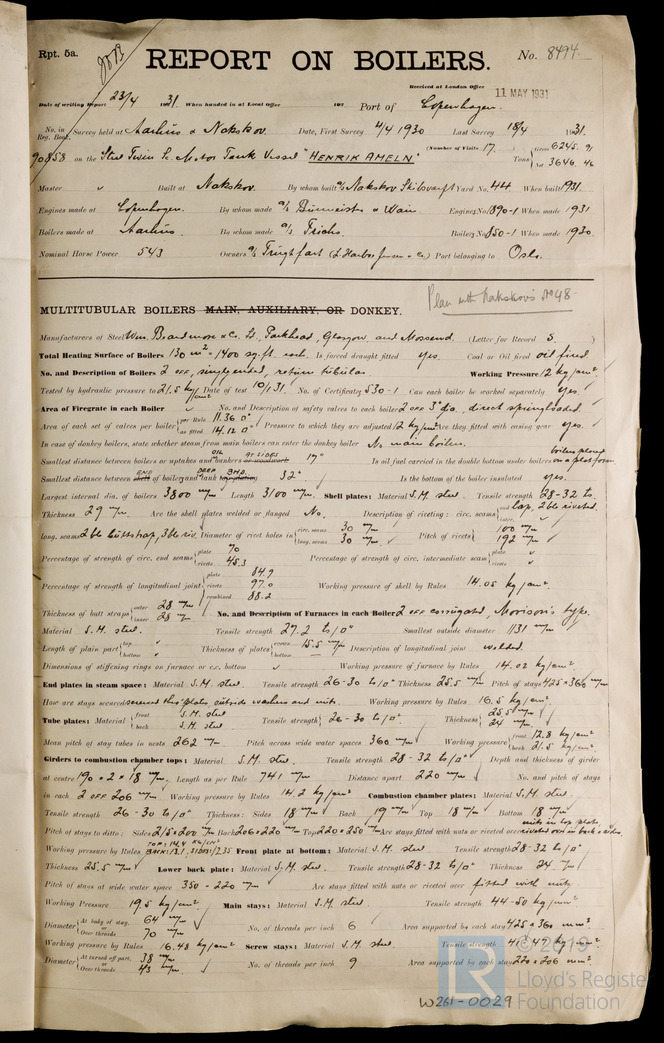 Rpt. 5a.
REPORT ON BOILERS.
No. 8494.
Received at London Office 11 MAY 1931
Date of writing Report 23/4 1931. When handed in at Local Office 192 Port of Copenhagen.
No. in Reg. Book. Survey held at Aarhus & Nakskov. Date, First Survey 4/4 1930 Last Survey 18/4 1931.
(Number of Visits 17.)
90858 on the Steel Twin Sc. Motor Tank Vessel "HENRIK AMELN" Tons Gross 6245.91 Net 3646.46
Master " Built at Nakskov. By whom built A/S Nakskov Skibsværft Yard No. 44 When built 1931.
Engines made at Copenhagen. By whom made A/S Burmeister & Wain. Engine No. 1890-1 When made 1931
Boilers made at Aarhus. By whom made A/S Frichs. Boiler No. 850-1 When made 1930.
Nominal Horse Power 543 Owners Port belonging to Oslo.
Plan with Nakskov's No 48
MULTITUBULAR BOILERS MAIN, AUXILIARY, OR DONKEY.
Manufacturers of Steel Wm. Beardmore & Co. Ld., Parkhead, Glasgow, and Mossend. (Letter for Record S.)
Total Heating Surface of Boilers 130 m² = 1400 sq. ft. each. Is forced draught fitted yes. Coal or Oil fired oil fired.
No. and Description of Boilers 2 off, single ended, return tubular. Working Pressure 12 kg/cm².
Tested by hydraulic pressure to 21.5 kg/cm² Date of test 10/1 31. No. of Certificate 530-1 Can each boiler be worked separately yes.
Area of Firegrate in each Boiler No. and Description of safety valves to each boiler 2 off 3" dia., direct springloaded.
Area of each set of valves per boiler per Rule 11.36 □" as fitted 14.12 □" Pressure to which they are adjusted 12 kg/cm² Are they fitted with easing gear yes.
In case of donkey boilers, state whether steam from main boilers can enter the donkey boiler No main boilers.
Smallest distance between boilers or uptakes and OIL bunkers or woodwork 17" Is oil fuel carried in the double bottom under boilers boilers placed on a platform
Smallest distance between shell of boiler and tank 32" Is the bottom of the boiler insulated yes.
Largest internal dia. of boilers 3800 m/m Length 3100 m/m. Shell plates: Material S.M. steel. Tensile strength 28-32 ts.
Thickness 29 m/m. Are the shell plates welded or flanged No. Description of riveting: circ. seams end lap, 2ble riveted. inter. "
long. seams 2ble buttstrap, 3ble riv. Diameter of rivet holes in circ. seams 30 m/m long. seams 30 m/m Pitch of rivets 100 m/m 192 m/m
Percentage of strength of circ. end seams plate 70 rivets 45.3 Percentage of strength of circ. intermediate seam plate " rivets "
Percentage of strength of longitudinal joint plate 84.9 rivets 97.0 combined 88.2 Working pressure of shell by Rules 14.05 kg/cm².
Thickness of butt straps outer 28 m/m inner 28 m/m No. and Description of Furnaces in each Boiler 2 off corrugated, Morison's type.
Material S.M. steel. Tensile strength 27.2 ts/□" Smallest outside diameter 1131 m/m
Length of plain part top " bottom " Thickness of plates crown 15.5 m/m bottom Description of longitudinal joint welded.
Dimensions of stiffening rings on furnace or c.c. bottom " Working pressure of furnace by Rules 14.02 kg/cm².
End plates in steam space: Material S.M. steel. Tensile strength 26-30 ts/□" Thickness 25.5 m/m Pitch of stays 425 × 360 m/m
How are stays secured screwed thro' plates, outside washers and nuts. Working pressure by Rules 16.5 kg/cm².
Tube plates: Material front S.M. steel back S.M. steel Tensile strength 26-30 ts/□" Thickness 25.5 m/m 24 m/m.
Mean pitch of stay tubes in nests 262 m/m. Pitch across wide water spaces 360 m/m Working pressure front 12.8 kg/cm² back 21.5 kg/cm².
Girders to combustion chamber tops: Material S.M. steel. Tensile strength 28-32 ts/□" Depth and thickness of girder
at centre 190 × 2 × 18 m/m. Length as per Rule 741 m/m Distance apart 220 m/m No. and pitch of stays
in each 2 off 206 m/m. Working pressure by Rules 14.2 kg/cm² Combustion chamber plates: Material S.M. steel.
Tensile strength 26-30 ts/□" Thickness: Sides 18 m/m Back 19 m/m Top 18 m/m Bottom 18 m/m
Pitch of stays to ditto: Sides 215 × 200 m/m Back 206 × 220 m/m Top 220 × 250 m/m Are stays fitted with nuts or riveted over nuts in top plate riveted over in back & sides.
Working pressure by Rules TOP: 14.4 KG/CM² BACK: 13.1 SIDES: 12.35 Front plate at bottom: Material S.M. steel Tensile strength 28-32 ts/□"
Thickness 25.5 m/m Lower back plate: Material S.M. steel. Tensile strength 28-32 ts/□" Thickness 24 m/m.
Pitch of stays at wide water space 350 - 220 m/m Are stays fitted with nuts or riveted over fitted with nuts.
Working Pressure 19.5 kg/cm². Main stays: Material S.M. steel. Tensile strength 44-50 kg/mm²
Diameter At body of stay, 64 m/m or Over threads 70 m/m. No. of threads per inch 6 Area supported by each stay 425 × 360 mm².
Working pressure by Rules 16.48 kg/cm². Screw stays: Material S.M. steel. Tensile strength 41-47 kg/mm².
Diameter At turned off part, 38 m/m or Over threads 43 m/m. No. of threads per inch 9 Area supported by each stay 220 × 206 mm².
© 2019
LR
Lloyd's Register
Foundation
W261-0029